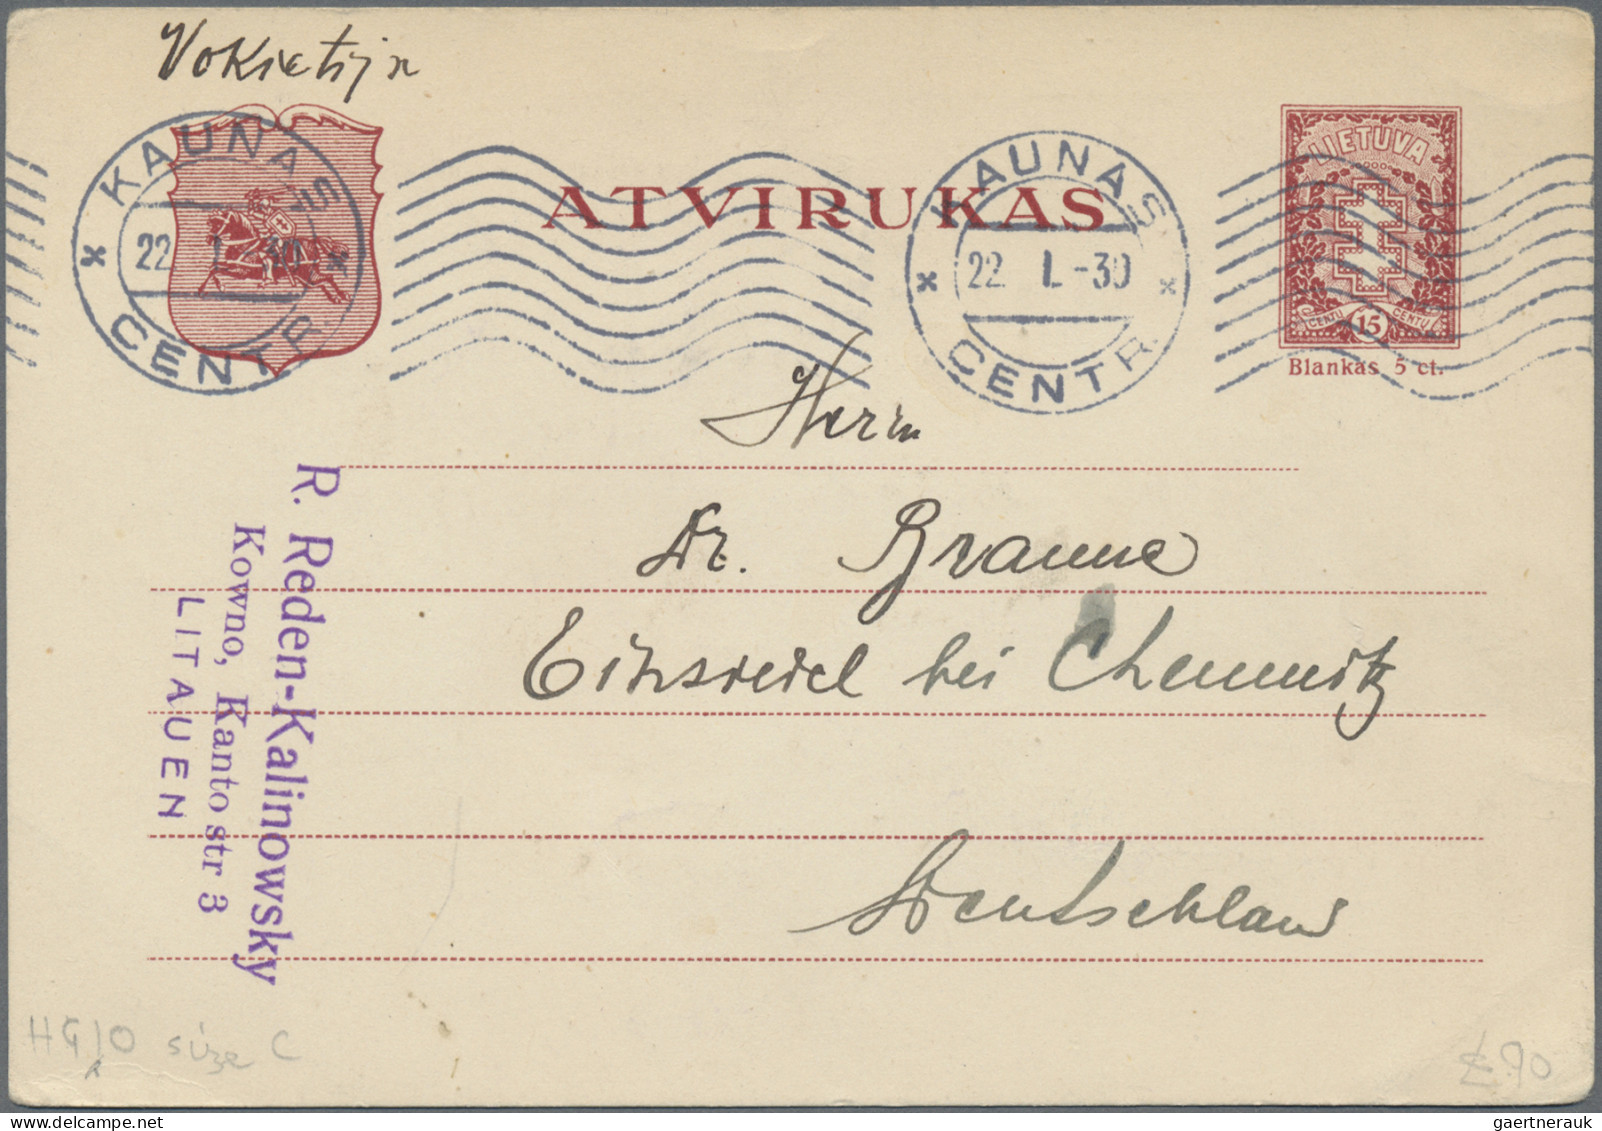 Vokietija
KAUNAS
CENTR.
22. I. -30
ATVIRUKAS
KAUNAS
CENTR.
22. I. -30
LIETUVA
CENTŲ 15 CENTŲ
Blankas 5 ct.
Herrn
Dr. Braune
Einsiedel bei Chemnitz
Deutschland
R. Reden-Kalinowsky
Kowno, Kanto str 3
LITAUEN
HG 10 size C
£90
gaertnerauk